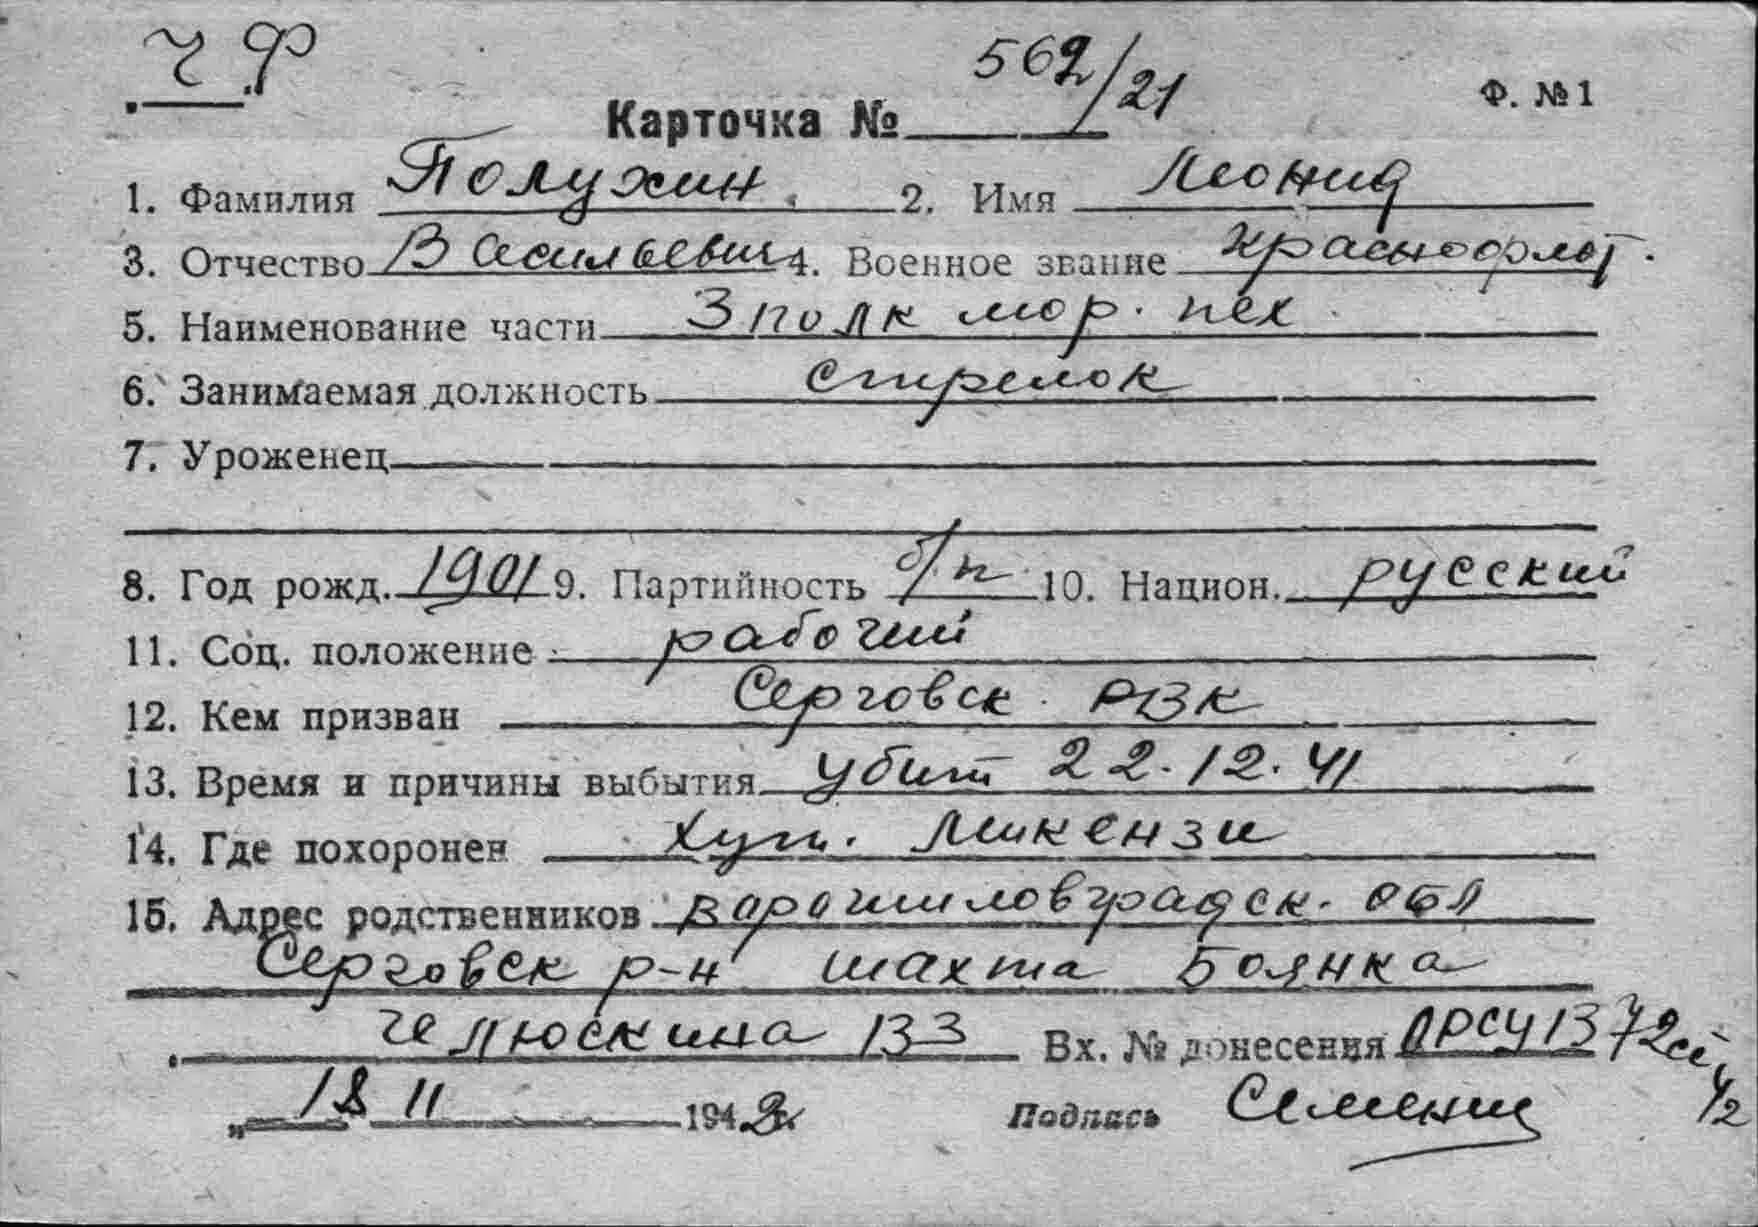 ЧФ
562/21
Ф. №1
Карточка №
1. Фамилия Полухин 2. Имя Леонид
3. Отчество Васильевич 4. Военное звание Краснофлот.
5. Наименование части 3 полк мор. пех
6. Занимаемая должность стрелок
7. Уроженец
8. Год рожд. 1901 9. Партийность б/п 10. Национ. русский
11. Соц. положение рабочий
12. Кем призван Серговск РВК
13. Время и причины выбытия убит 22.12.41
14. Где похоронен хут. Микензи
15. Адрес родственников Ворошиловградск. обл
Серговск р-н шахта Боянка
Челюскина 133 Вх. № донесения 1372сс
"18 II 1942г. Подпись